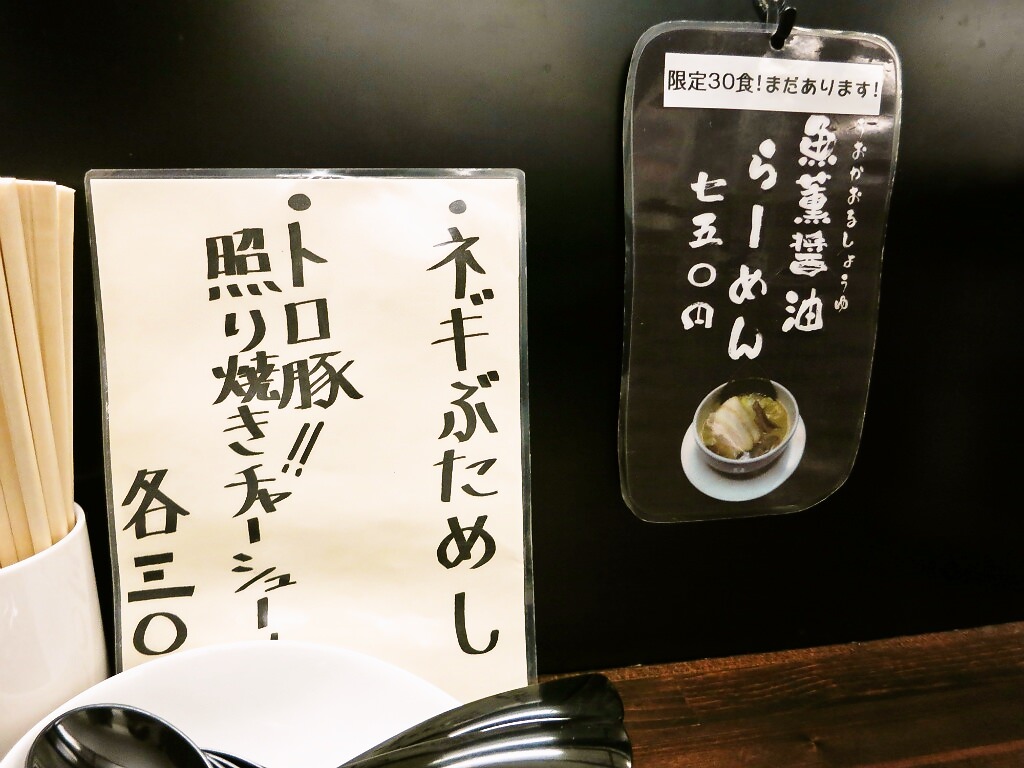 限定30食!まだあります!
うおかおるしょうゆ
魚薫醤油
らーめん
七五〇円
・ネギぶためし
・トロ豚!!
照り焼きチャーシュー
各三〇